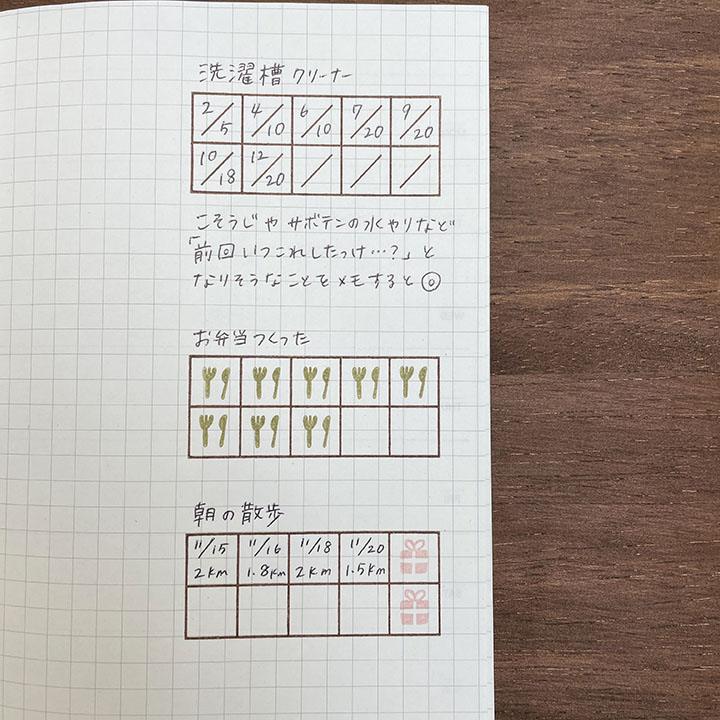 洗濯槽クリーナー
2/5 4/10 6/10 7/20 9/20
10/18 12/20 / / /
こそうじや サボテンの水やりなど
「前回いつこれしたっけ…?」と
なりそうなことをメモすると◎
お弁当つくった
朝の散歩
11/15 11/16 11/18 11/20
2km 1.8km 2km 1.5km